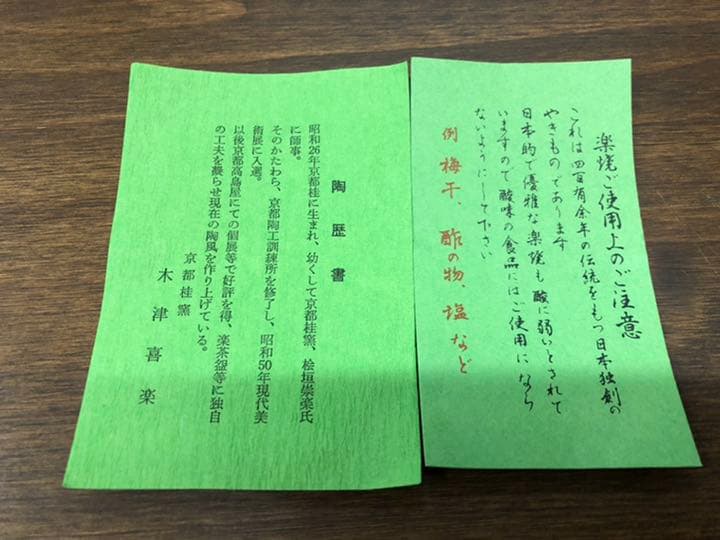 楽焼ご使用上のご注意
これは四百有余年の伝統をもつ日本独創の
やきものであります
日本的で優雅な楽焼も酸に弱いとされて
いますので酸味の食品にはご使用になら
ないようにして下さい
例 梅干、酢の物、塩など
陶歴書
昭和26年京都桂に生まれ、幼くして京都桂窯、桧垣崇楽氏
に師事。
そのかたわら、京都陶工訓練所を修了し、昭和50年現代美
術展に入選。
以後京都高島屋にての個展等で好評を得、楽茶盌等に独自
の工夫を凝らせ現在の陶風を作り上げている。
京都桂窯
木津喜楽